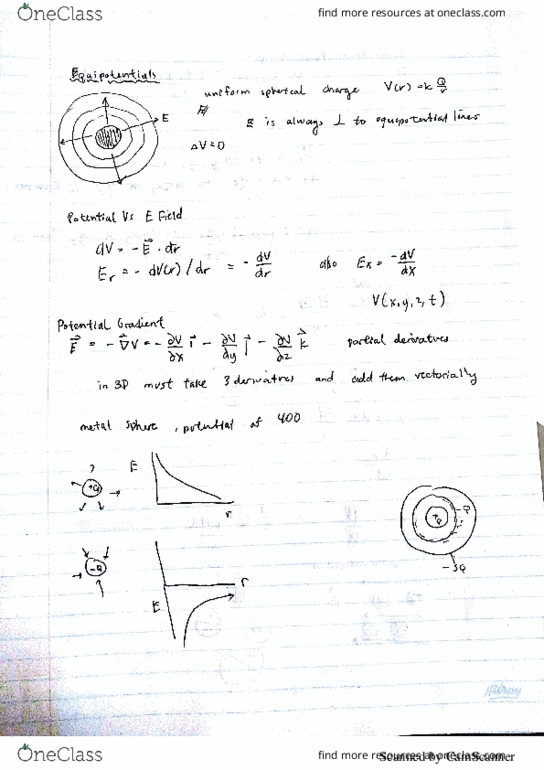 OneClass
find more resources at oneclass.com
Equipotentials
uniform spherical charge V(r) = k Q/r
E
E is always ⊥ to equipotential lines
ΔV = 0
Potential Vs E Field
dV = -E⃗ · dr
E_r = - dV(r)/dr = - dV/dr also E_x = -dV/dx
V(x,y,z,t)
Potential Gradient
E⃗ = -∇⃗V = -∂V/∂x i⃗ - ∂V/∂y j⃗ - ∂V/∂z k⃗ partial derivatives
in 3D must take 3 derivatives and add them vectorially
metal sphere, potential at
E
+Q
r
-Q
+Q
-3Q
-Q
r
E
Hilroy
OneClass
find more resources at oneclass.com
Scanned by CamScanner